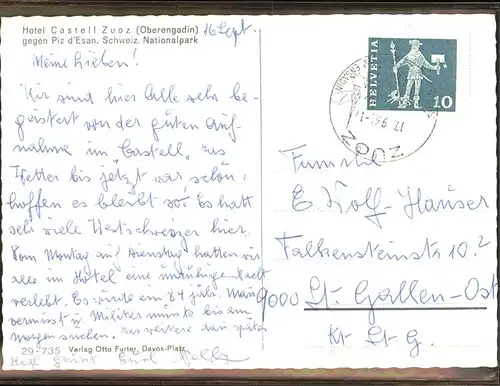 Hotel Castell Zuoz (Oberengadin)
gegen Piz d'Esan. Schweiz. Nationalpark
16 Sept.
Meine Lieben!
Wir sind hier Alle sehr be-
geistert von der guten Auf-
nahme im Castell, das
Wetter bis jetzt war schön,
hoffen es bleibt so. Es hatt
sehr viele Westschweizer hier.
Vom Montag auf Dienstag hatten wir
alle im Hotel eine unruhige Nacht
verlebt. Es wurde ein 84 jähr. Mann
vermisst u. Militär musste bis am
Morgen suchen. Das weitere dann später
29-735 Verlag Otto Furter, Davos-Platz
Herzl.
HELVETIA
10
ZUOZ
17. 9.
Familie
E. Wolf-Hauser
Falkensteinstr. 10.²
9000 St. Gallen-Ost
Kt. St. G.